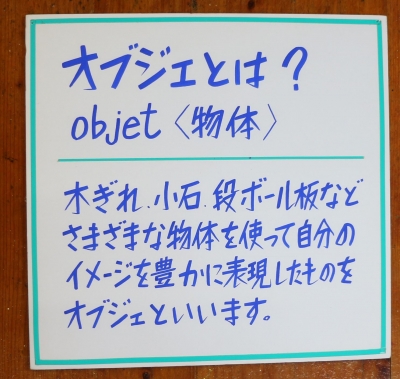 オブジェとは？
objet〈物体〉
木ぎれ、小石、段ボール板など
さまざまな物体を使って自分の
イメージを豊かに表現したものを
オブジェといいます。